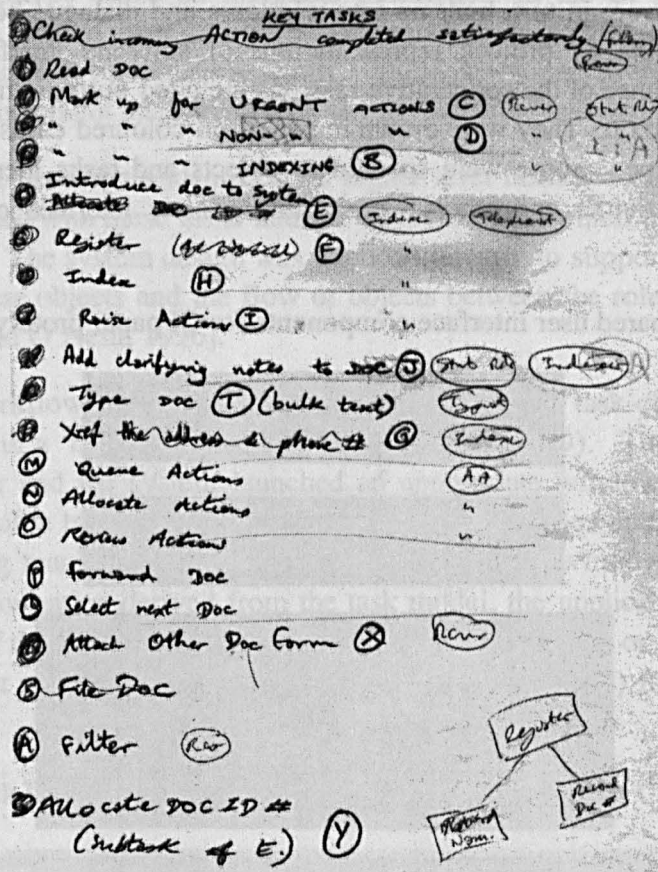 KEY TASKS
Check incoming ACTION completed satisfactorily
Read Doc
Mark up for URGENT ACTIONS C Recvr Stat Rdr
" " " NON- " " D " "
" " " INDEXING B " "
Introduce doc to system E Indexer
Allocate
Register F "
Index H "
Raise Action I "
Add clarifying notes to DOC J Stat Rdr Indexer
Type DOC T (bulk text) Typist
Xref the address & phone # G Indexer
M Queue Actions AA
N Allocate Actions "
O Review Actions "
P Forward DOC
Select next Doc
Attach Other Doc Form X Recvr
S File Doc
A Filter Rcvr
Register
Allocate DOC ID # Record Doc #
(subtask of E.) Y